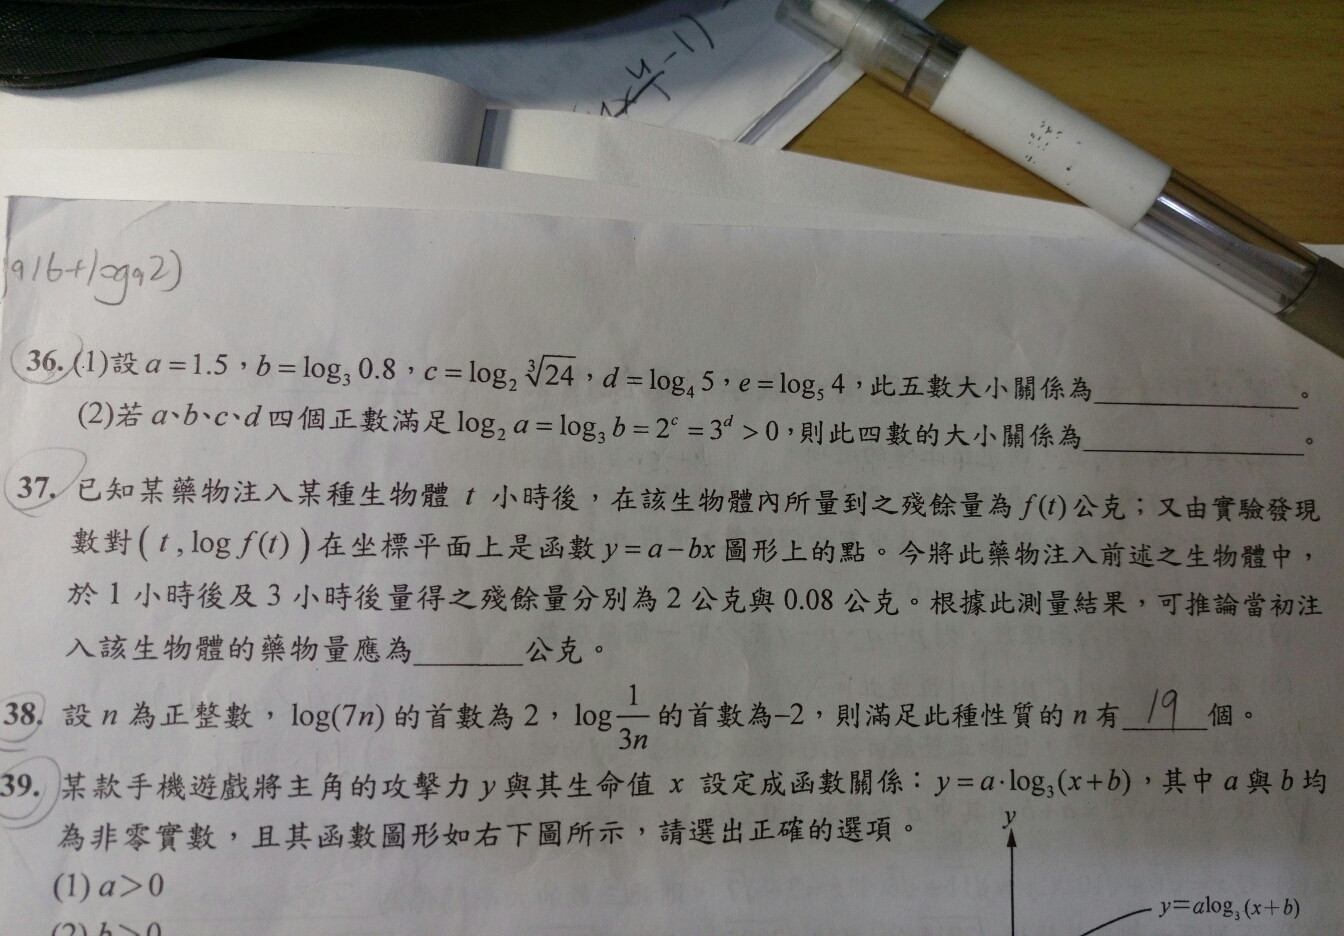 4
-1)
9 16+log₉2)
36. (1)設 a = 1.5，b = log₃ 0.8，c = log₂ ∛24，d = log₄ 5，e = log₅ 4，此五數大小關係為__________。
(2)若 a、b、c、d 四個正數滿足 log₂ a = log₃ b = 2ᶜ = 3ᵈ > 0，則此四數的大小關係為__________。
37. 已知某藥物注入某種生物體 t 小時後，在該生物體內所量到之殘餘量為 f(t)公克；又由實驗發現
數對( t , log f(t) )在坐標平面上是函數 y = a − bx 圖形上的點。今將此藥物注入前述之生物體中，
於 1 小時後及 3 小時後量得之殘餘量分別為 2 公克與 0.08 公克。根據此測量結果，可推論當初注
入該生物體的藥物量應為______公克。
38. 設 n 為正整數，log(7n) 的首數為 2，log 1/3n 的首數為−2，則滿足此種性質的 n 有 19 個。
39. 某款手機遊戲將主角的攻擊力 y 與其生命值 x 設定成函數關係：y = a·log₃(x+b)，其中 a 與 b 均
為非零實數，且其函數圖形如右下圖所示，請選出正確的選項。
y
(1) a>0
y=alog₃(x+b)
(2) b>0